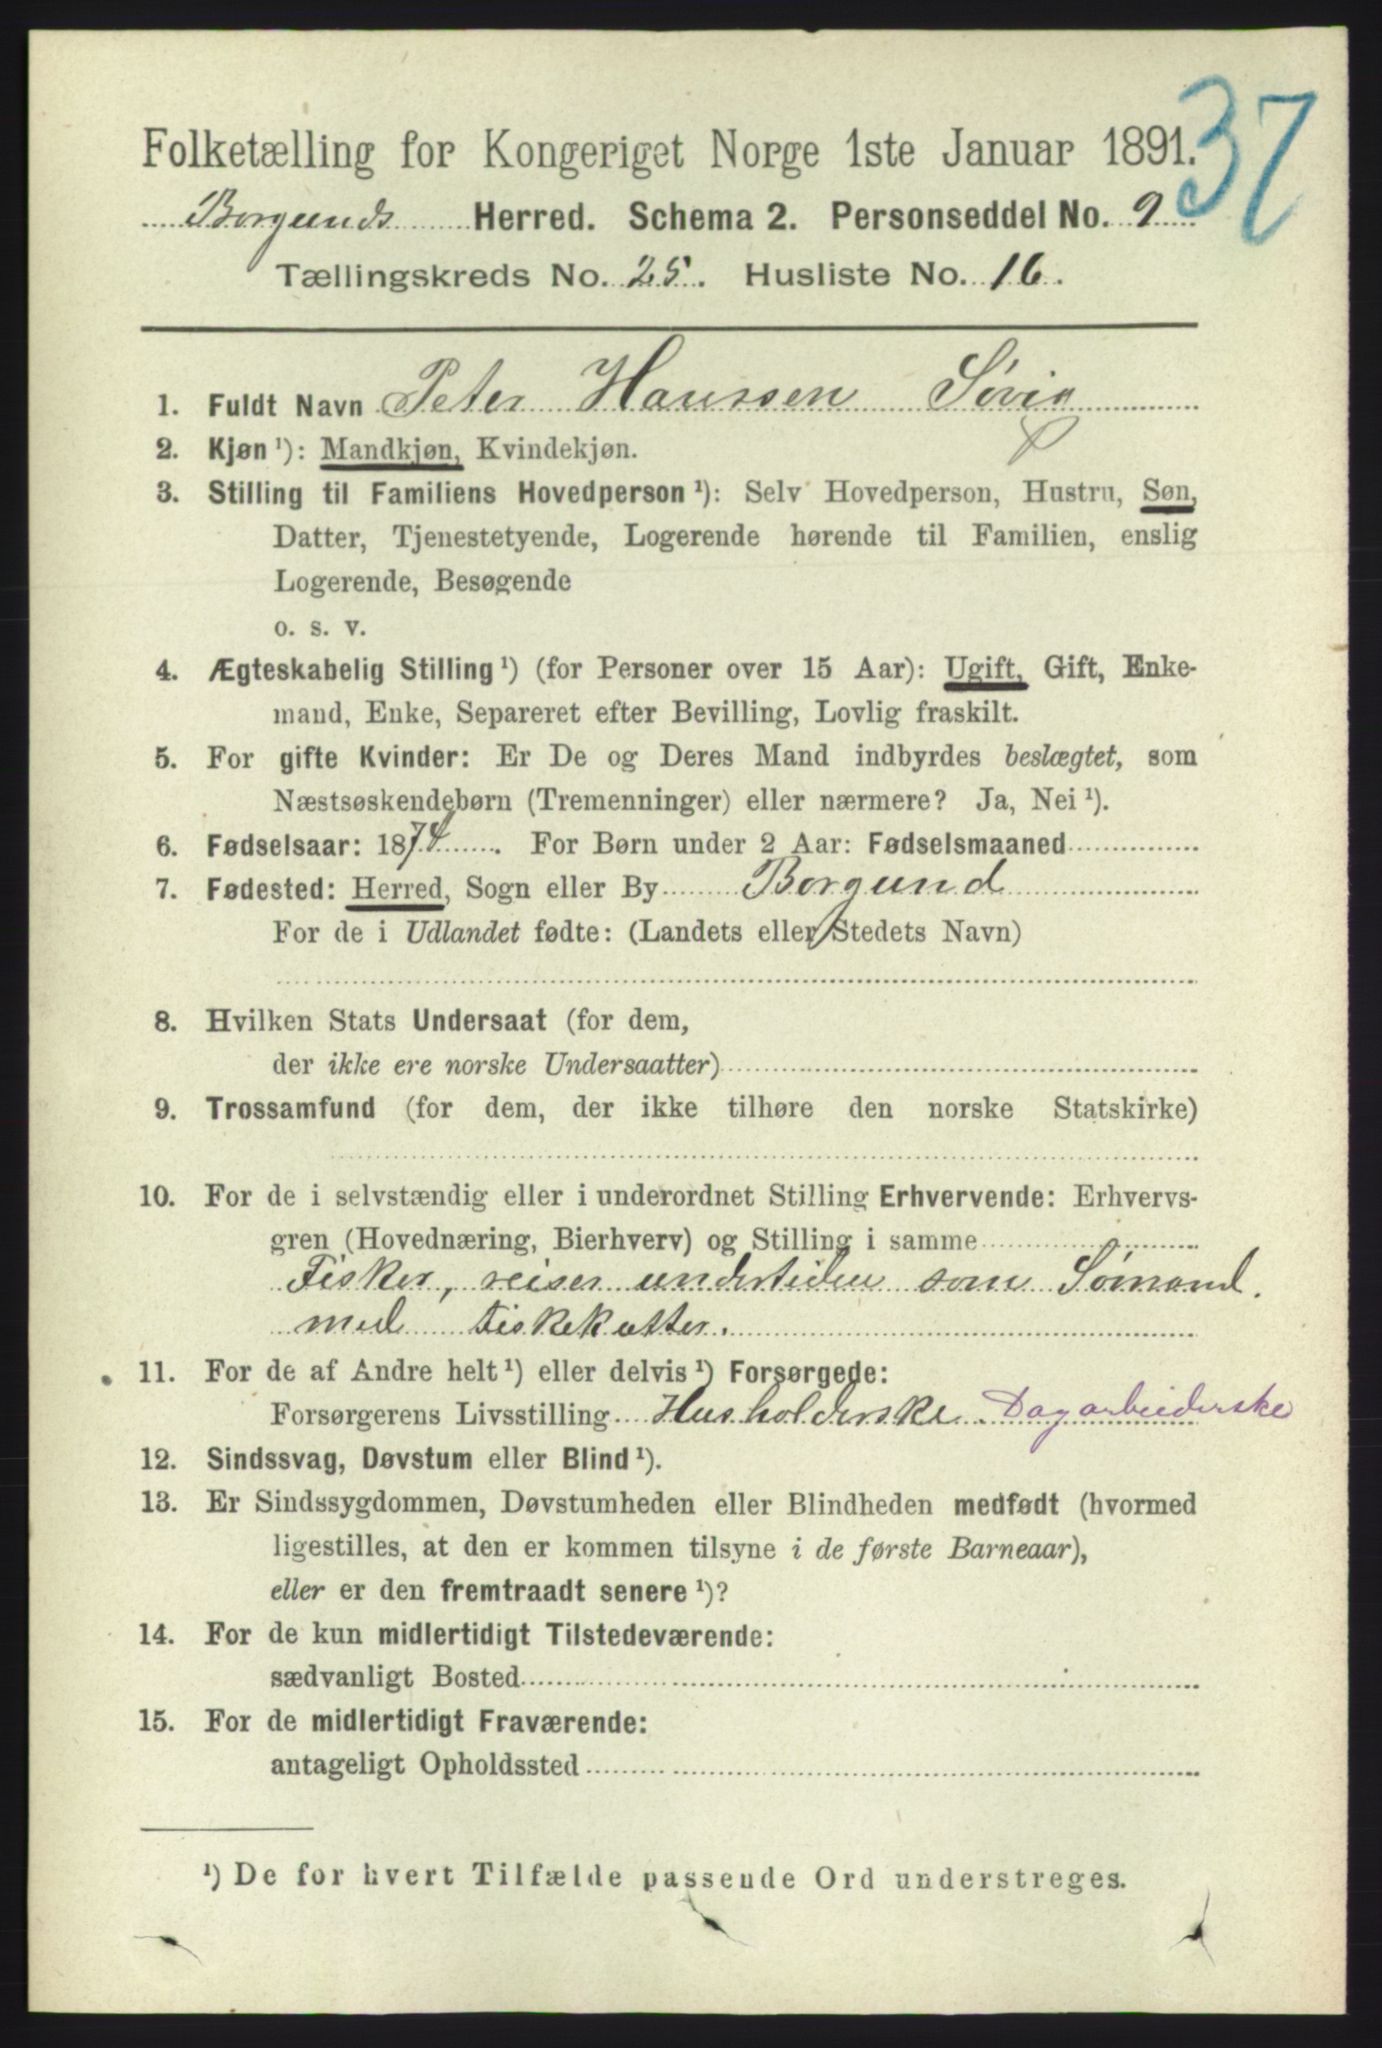 37
Folketælling for Kongeriget Norge 1ste Januar 1891.
Borgunds Herred. Schema 2. Personseddel No. 9
Tællingskreds No. 25. Husliste No. 16.
1. Fuldt Navn Peter Hanssen
2. Kjøn ¹): Mandkjøn, Kvindekjøn.
3. Stilling til Familiens Hovedperson ¹): Selv Hovedperson, Hustru, Søn,
Datter, Tjenestetyende, Logerende hørende til Familien, enslig
Logerende, Besøgende
o. s. v.
4. Ægteskabelig Stilling ¹) (for Personer over 15 Aar): Ugift, Gift, Enke-
mand, Enke, Separeret efter Bevilling, Lovlig fraskilt.
5. For gifte Kvinder: Er De og Deres Mand indbyrdes beslægtet, som
Næstsøskendebørn (Tremenninger) eller nærmere? Ja, Nei ¹).
6. Fødselsaar: 1874. For Børn under 2 Aar: Fødselsmaaned
7. Fødested: Herred, Sogn eller By Borgund
For de i Udlandet fødte: (Landets eller Stedets Navn)
8. Hvilken Stats Undersaat (for dem,
der ikke ere norske Undersaatter)
9. Trossamfund (for dem, der ikke tilhøre den norske Statskirke)
10. For de i selvstændig eller i underordnet Stilling Erhvervende: Erhvervs-
gren (Hovednæring, Bierhverv) og Stilling i samme
Fisker, reiser undertiden som Sømand.
med Fiskekutter.
11. For de af Andre helt ¹) eller delvis ¹) Forsørgede:
Forsørgerens Livsstilling Husholderske. Dagarbeiderske
12. Sindssvag, Døvstum eller Blind ¹).
13. Er Sindssygdommen, Døvstumheden eller Blindheden medfødt (hvormed
ligestilles, at den er kommen tilsyne i de første Barneaar),
eller er den fremtraadt senere ¹)?
14. For de kun midlertidigt Tilstedeværende:
sædvanligt Bosted
15. For de midlertidigt Fraværende:
antageligt Opholdssted
¹) De for hvert Tilfælde passende Ord understreges.